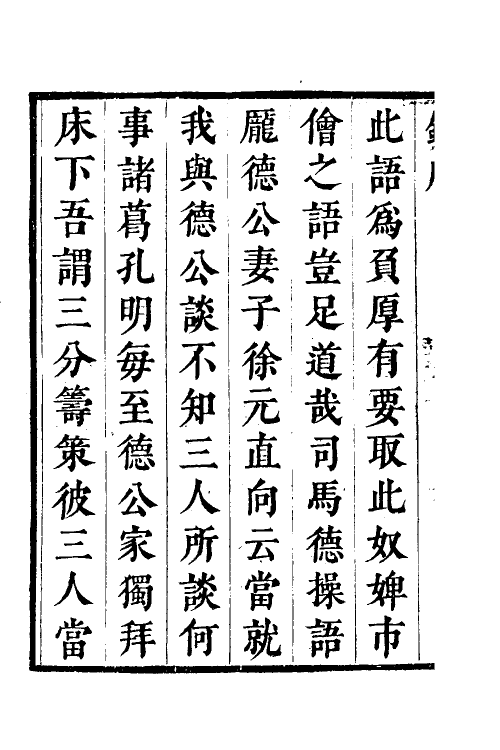 此語爲負厚有要取此奴婢市
儈之語豈足道哉司馬德操語
龐德公妻子徐元直向云當就
我與德公談不知三人所談何
事諸葛孔明每至德公家獨拜
床下吾謂三分籌策彼三人當